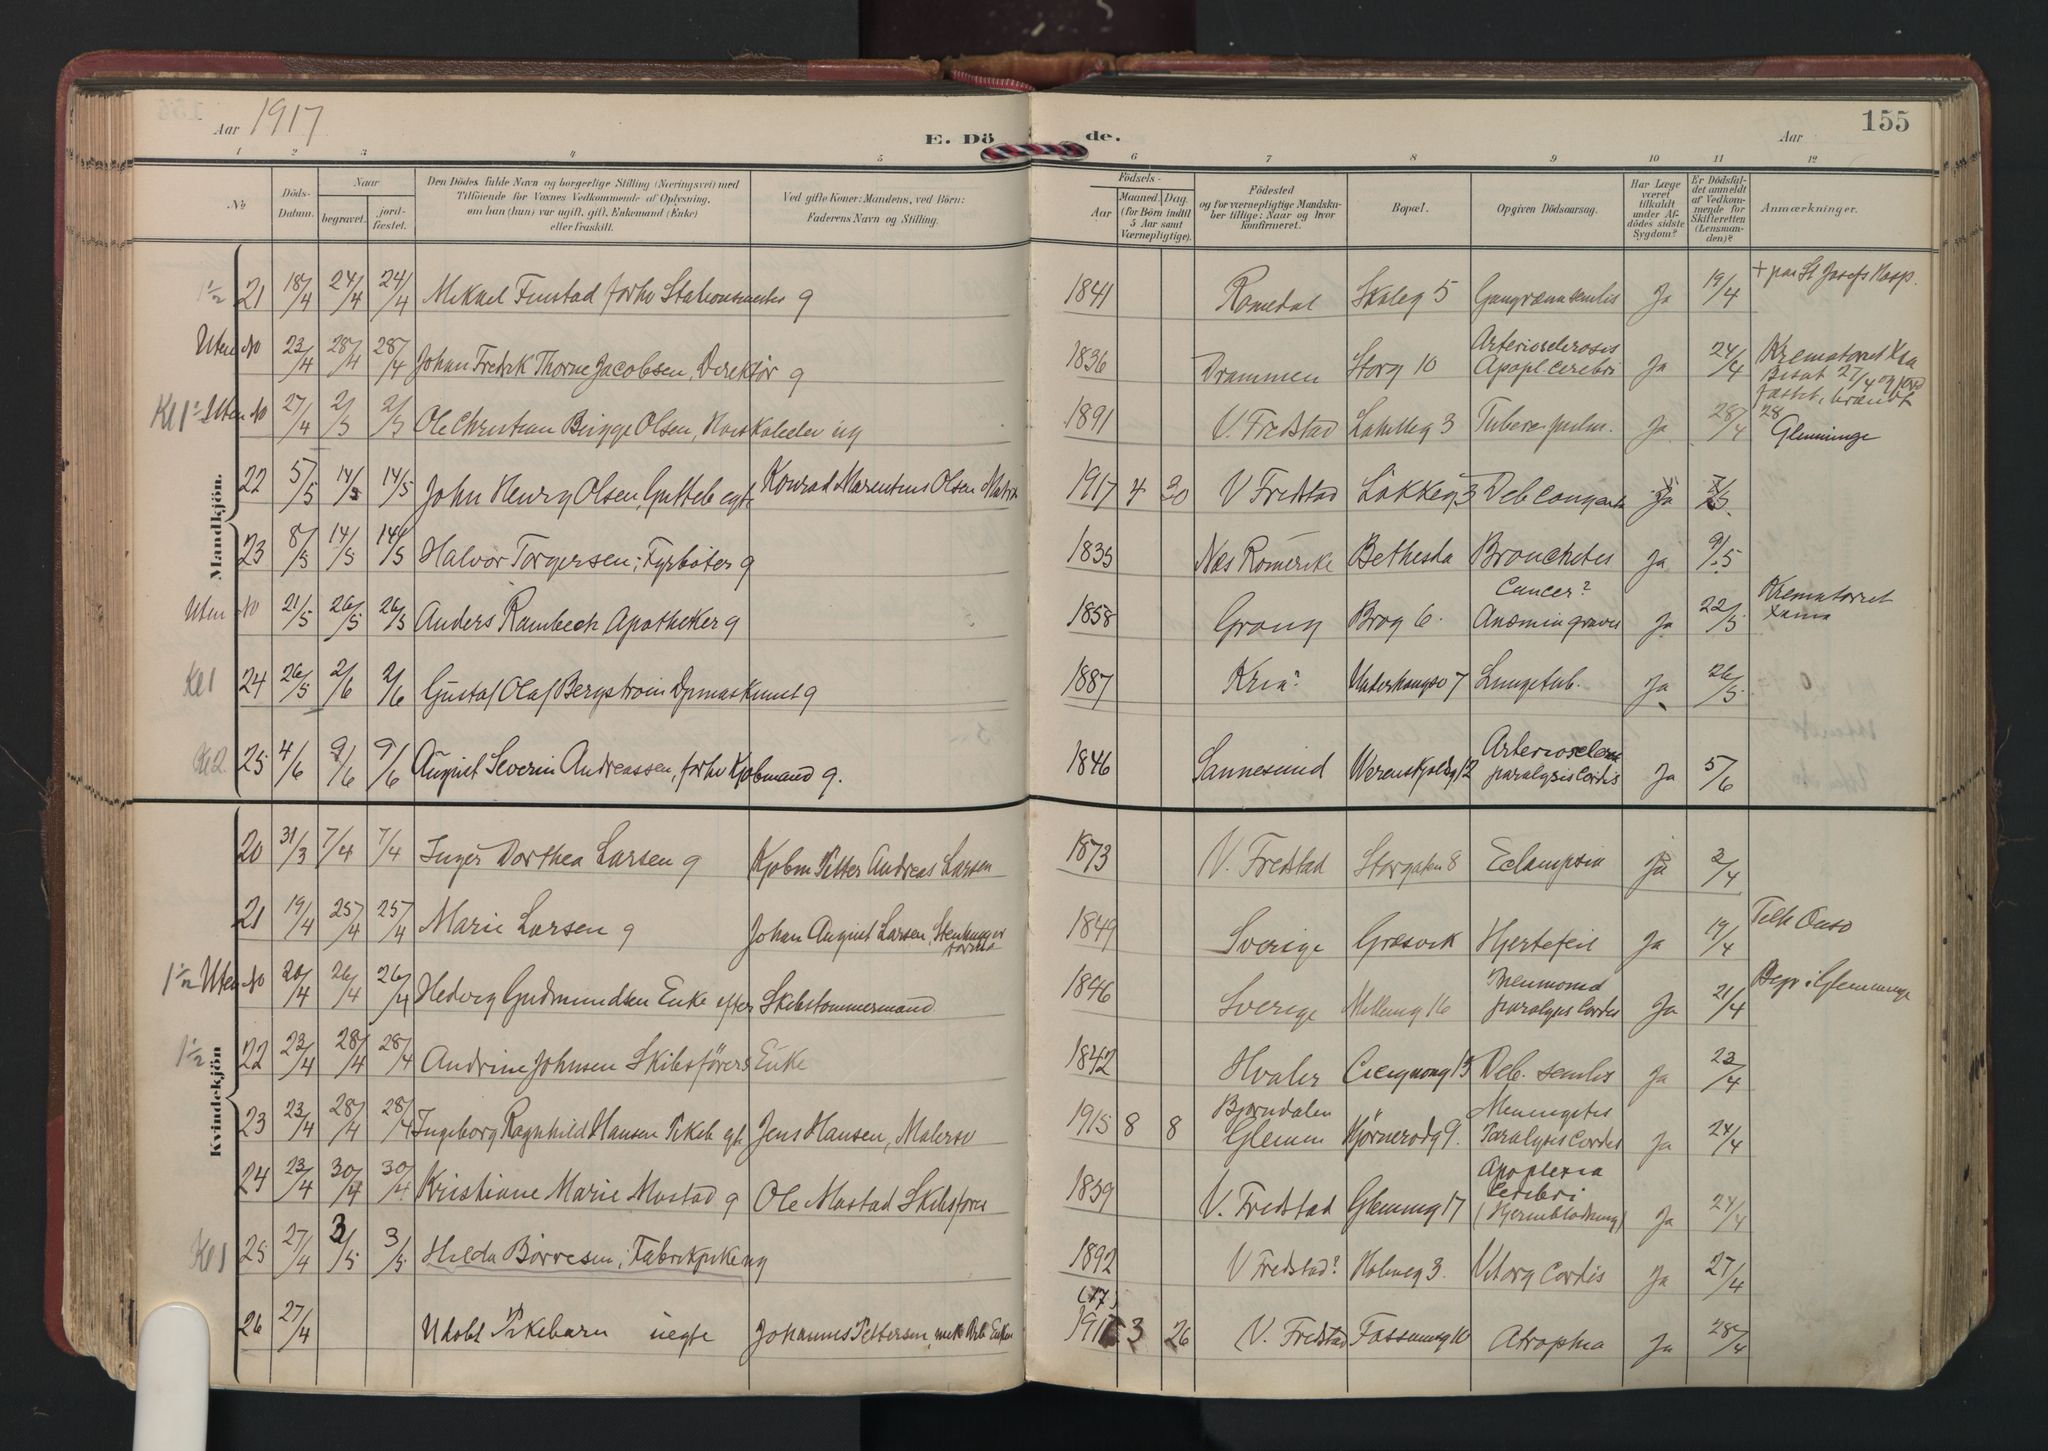 155
Aar 1917
E. Dö de.
Aar
1 2 3 4 5 6 7 8 9 10 11 12
No
Döds-Datum.
Naar
begravet.
jord-fæstet.
Den Dödes fulde Navn og borgerlige Stilling (Næringsvei) med
Tilföiende for Voxnes Vedkommende af Oplysning,
om han (hun) var ugift, gift, Enkemand (Enke)
eller fraskilt.
Ved gifte Koner: Mandens, ved Börn:
Faderens Navn og Stilling.
Födsels-
Aar
Maaned. Dag.
(for Börn indtil
5 Aar samt
Værnepligtige).
Födested
og for værnepligtige Mandska-
ber tillige: Naar og hvor
konfirmeret.
Bopæl.
Opgiven Dödsaarsag.
Har Læge
været
tilkaldt
under Af-
dödes sidste
Sygdom?
Er Dödsfal-
det anmeldt
af Vedkom-
mende for
Skifteretten
(Lensman-
den)?
Anmærkninger.
Mandkjön.
21 18/4 24/4 24/4 Mikael Finstad forhv Stationsmester g 1841 Romedal Skoleg 5 Gangræna senilis Ja 19/4 + paa St Josefs Hosp.
Uten No 23/4 28/4 28/4 Johan Fredrk Thorne Jacobsen, Direktør g 1836 Drammen Storg 10 Arteriosclerosis Apopl. cerebri Ja 24/4 Krematoriet Kra
Bisat 27/4 og jord
fæstet, brændt
28
Kl 1 Uten No 27/4 2/5 2/5 Ole Christian Brygge Olsen, ug 1891 V. Fredstad 3 Tuberc. pulm. Ja 28/4 Glemminge
22 5/5 14/5 14/5 John Henry Olsen, Gutteb egte Konrad Marentius Olsen Matros 1917 4 30 V Fredstad Løkkeg 3 Deb congenita Ja 7/5
23 8/5 14/5 14/5 Halvor Torgersen; Fyrbøter g 1835 Næs Romerike Bethesda Bronchitis Ja 9/5
Uten No 21/5 26/5 26/5 Anders Rambech Apotheker g 1858 Grong Brog 6. Cancer? Anæmia gravis Ja 22/5 Krematoriet
Kl 1 24 26/5 2/6 2/6 Gustaf Olaf Bergstrøm g 1887 Kria? 7 Lungetub. Ja 26/5
Kl 2 25 4/6 9/6 9/6 August Severin Andreassen, forhv Kjøbmand g. 1846 Sannesund Werenskjoldg 12 paralysis Cordis Ja 5/6
Kvindekjön
20 31/3 7/4 7/4 Inger Dorthea Larsen g Kjøbm Petter Andreas Larsen 1873 V. Fredstad Storgaten 8 Eclampsia Ja 2/4
21 19/4 25/4 25/4 Marie Larsen g Johan August Larsen, Stenhugger 1849 Sverige Græsvik Hjertefeil Ja 19/4 Onsø
1 1/2 Uten No 20/4 26/4 26/4 Hedvig Gudmundsen Enke efter Skibstømmermand 1846 Sverige 16 paralysis Cordis Ja 21/4 Begr. i Glemminge
1 1/2 22 23/4 28/4 28/4 Andrine Johnsen Skibsførers Enke 1842 Hvaler Deb. senilis Ja 23/4
23 23/4 28/4 28/4 Ingeborg Ragnhild Hansen Pikeb egte Jens Hansen, Malersv 1915 8 8 Bjørndalen Glemm 9. Meningitis Paralysis Cordis Ja 24/4
24 23/4 30/4 30/4 Kristiane Marie Mostad g Ole Mostad Skibsfører 1839 V. Fredstad Glemmg 17 Apoplexia Cerebri (Hjerneblødning) Ja 24/4
Kl 1 25 27/4 3/5 3/5 Hilda Børresen; Fabrikpike ug 1892 V Fredstad? Holmeg 3. Vit org Cordis Ja 27/4
26 27/4 Udøbt Pikebarn uegte Johannes Pettersen, (17) 1917 3 26 V. Fredstad 10 Atrophia Ja 28/4